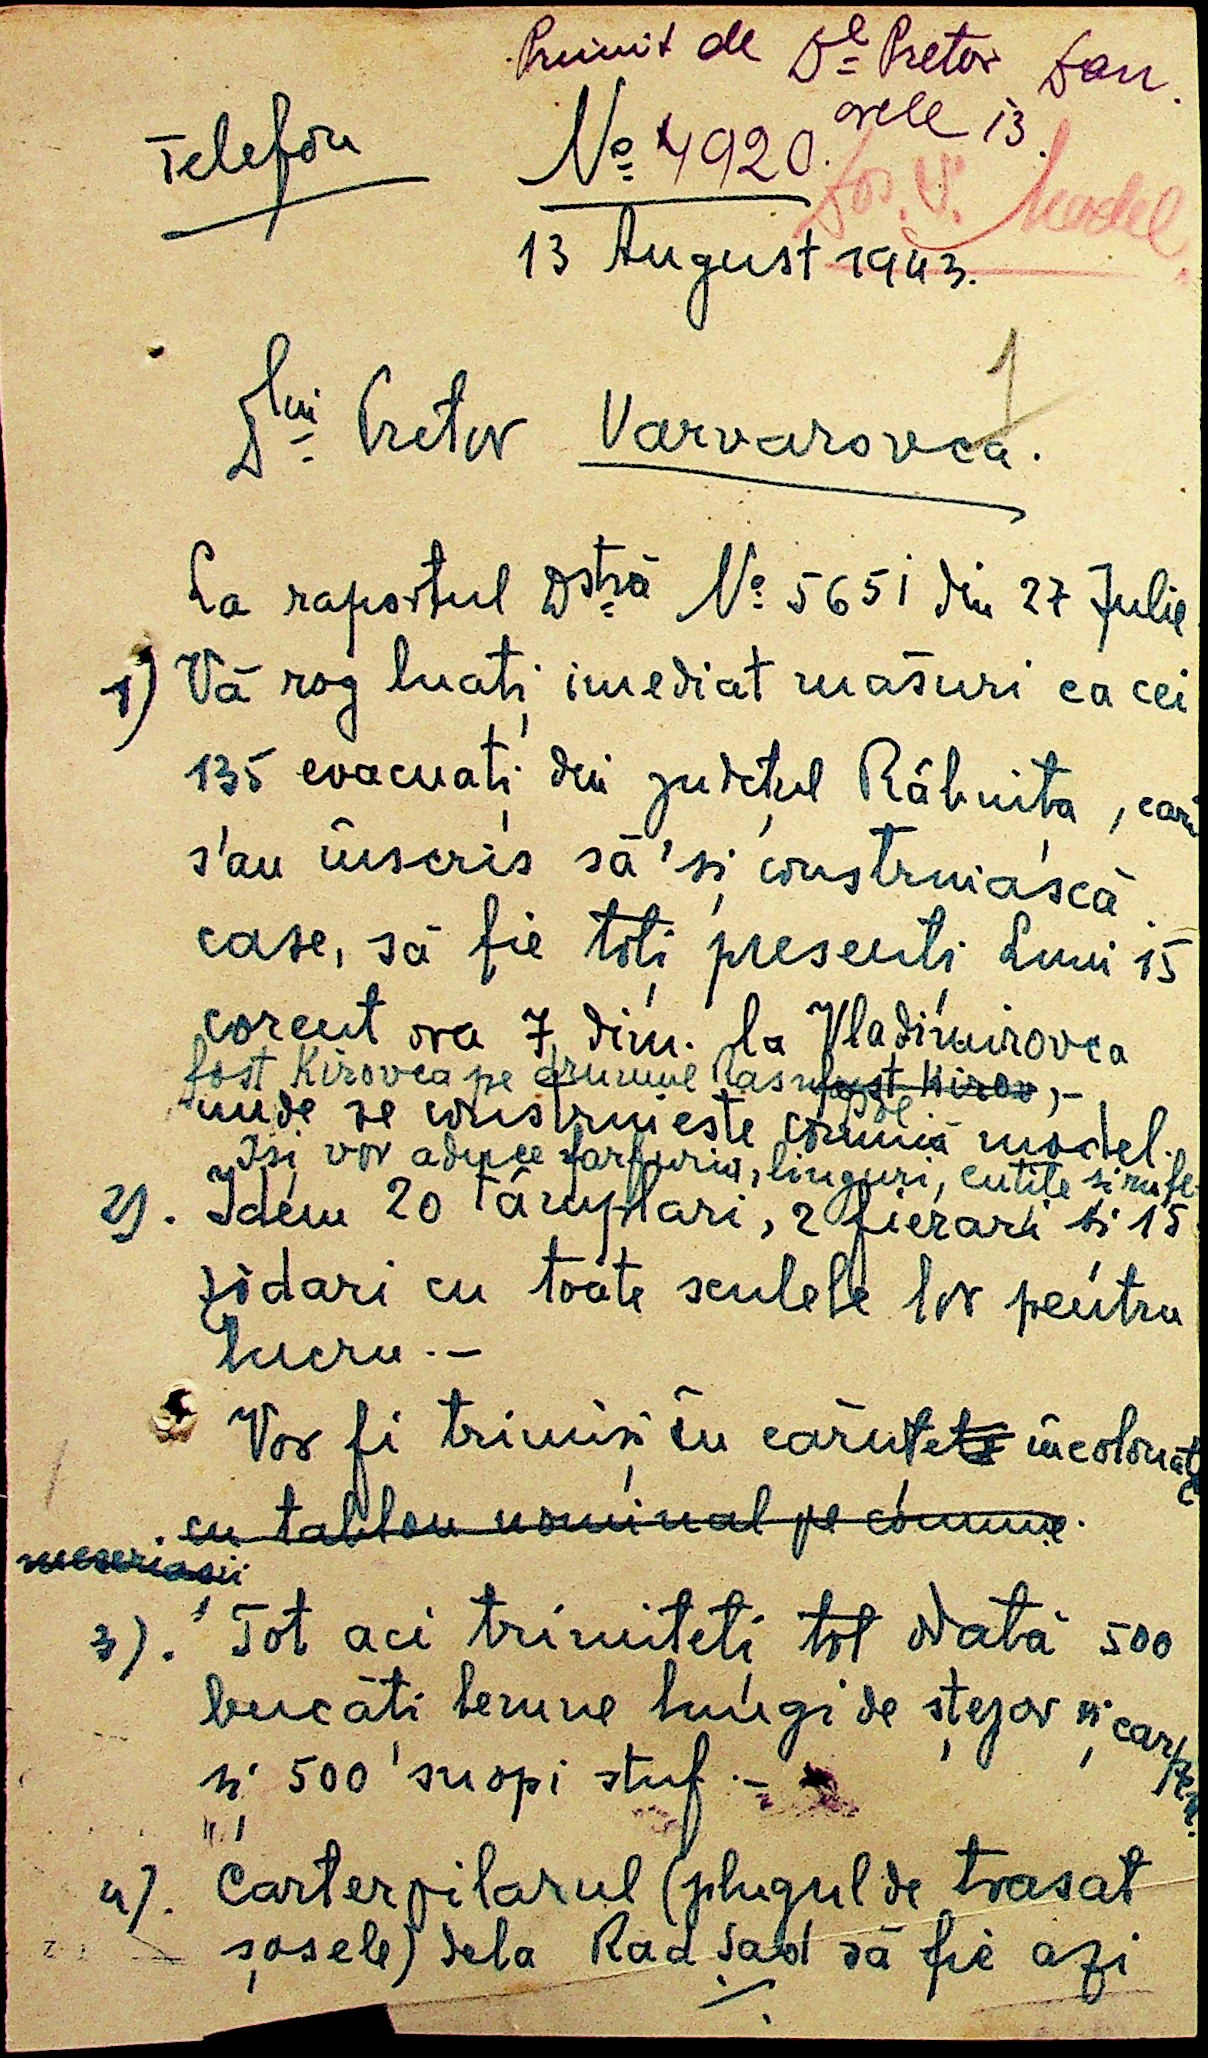 Primit de Dl Pretor Dan.
orele 13.
Telefon
No 4920.
Dos. V. Model
13 August 1943.
1
Dlui Pretor Varvarovca.
La raportul Dstră No 5651 din 27 Julie
1) Vă rog luați imediat măsuri ca cei
135 evacuați din județul Râbnița, cari
s'au înscris să'și construiască
case, să fie toți presenți Luni 15
corent ora 7 dim. la Vladimirovca
fost Kirovca pe drumul fost Kirov,-
unde se construiește comună model.
Iși vor aduce farfurie, linguri, cuțite și rufe
2). Idem 20 tâmplari, 2 fierari și 15
zidari cu toate sculele lor pentru
lucru.-
Vor fi trimiși în căruțe încolonate
cu tablou nominal pe comune.
meseriașii
3). Tot aci trimiteți tot odată 500
bucăți lemne lungi de ștejar și carpen
și 500 snopi stuf.-
4). Carterpilarul (plugul de trasat
șosele) dela Rad Sad să fie azi